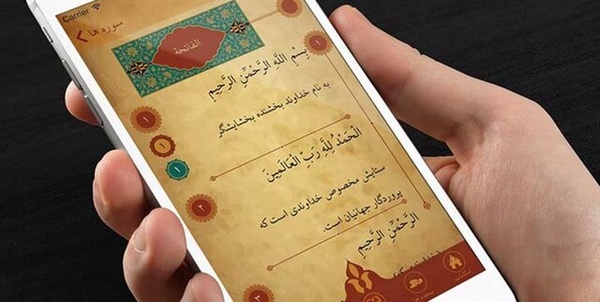 Carrier
سوره ها
الفاتحة
۱
بِسْمِ اللَّهِ الرَّحْمَٰنِ الرَّحِيمِ
به نام خداوند بخشنده بخشایشگر
۱
۱
۱
الْحَمْدُ لِلَّهِ رَبِّ الْعَالَمِينَ
ستایش مخصوص خداوندی است که
پروردگار جهانیان است.
۲
الرَّحْمَٰنِ الرَّحِيمِ
۳